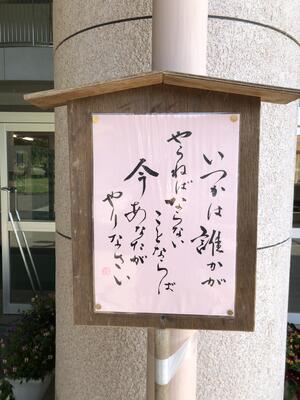 いつかは誰かが
やらねばならない
ことならば
今あなたが
やりなさい